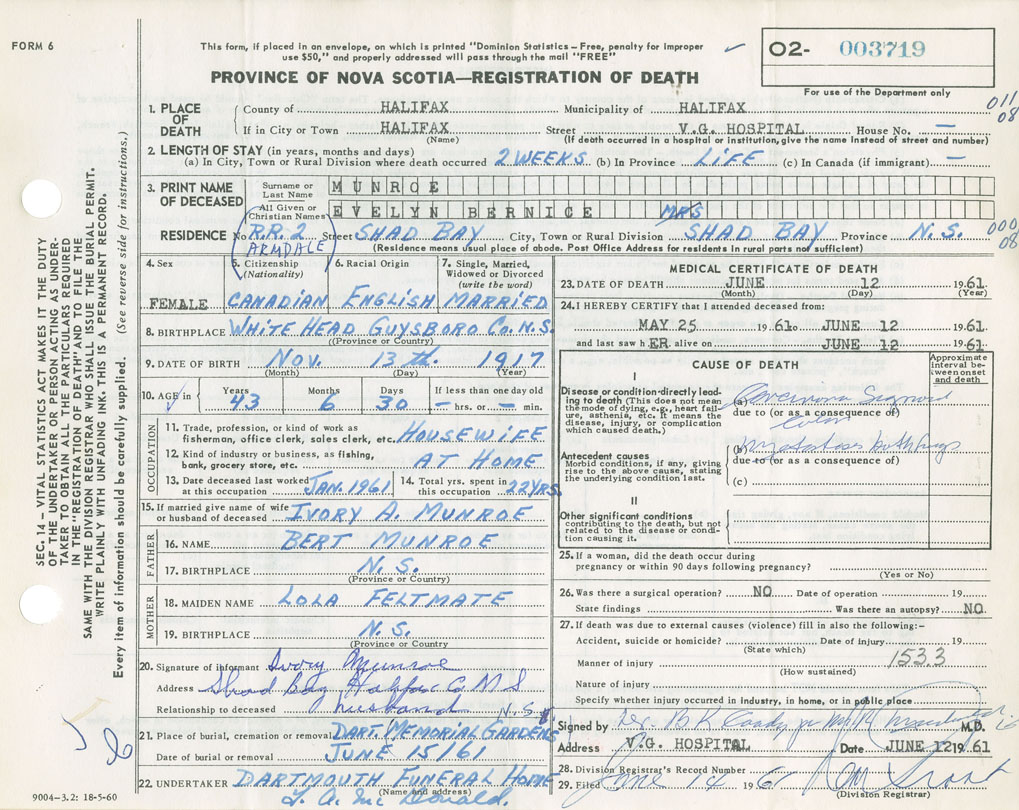 FORM 6
This form, if placed in an envelope, on which is printed "Dominion Statistics – Free, penalty for improper
use $50," and properly addressed will pass through the mail "FREE"
O2- 003719
For use of the Department only
PROVINCE OF NOVA SCOTIA—REGISTRATION OF DEATH
011
08
1. PLACE OF DEATH
County of HALIFAX Municipality of HALIFAX
If in City or Town HALIFAX Street V.G. HOSPITAL House No. —
(Name) (If death occurred in a hospital or institution, give the name instead of street and number)
2. LENGTH OF STAY (in years, months and days)
(a) In City, Town or Rural Division where death occurred 2 WEEKS (b) In Province LIFE (c) In Canada (if immigrant) —
3. PRINT NAME OF DECEASED
Surname or Last Name MUNROE
All Given or Christian Names EVELYN BERNICE MRS
RESIDENCE No RR.2 ARMDALE Street SHAD BAY City, Town or Rural Division SHAD BAY Province N.S.
(Residence means usual place of abode. Post Office Address for residents in rural parts not sufficient)
000
08
4. Sex FEMALE
5. Citizenship (Nationality) CANADIAN
6. Racial Origin ENGLISH
7. Single, Married, Widowed or Divorced (write the word) MARRIED
8. BIRTHPLACE WHITE HEAD GUYSBORO CO. N.S.
(Province or Country)
9. DATE OF BIRTH NOV. 13th. 1917
(Month) (Day) (Year)
10. AGE in Years 43 Months 6 Days 30 If less than one day old — hrs. or — min.
OCCUPATION
11. Trade, profession, or kind of work as
fisherman, office clerk, sales clerk, etc. HOUSEWIFE
12. Kind of industry or business, as fishing,
bank, grocery store, etc. AT HOME
13. Date deceased last worked at this occupation JAN. 1961
14. Total yrs. spent in this occupation 22 YRS.
15. If married give name of wife
or husband of deceased IVORY A. MUNROE
FATHER
16. NAME BERT MUNROE
17. BIRTHPLACE N.S.
(Province or Country)
MOTHER
18. MAIDEN NAME LOLA FELTMATE
19. BIRTHPLACE N.S.
(Province or Country)
20. Signature of informant Ivory Munroe
Address Shad Bay Halifax Co N S
Relationship to deceased husband N.S.
21. Place of burial, cremation or removal DART. MEMORIAL GARDENS
Date of burial or removal JUNE 15/61
22. UNDERTAKER DARTMOUTH FUNERAL HOME
(Name and address)
McDonald.
9004–3.2: 18-5-60
MEDICAL CERTIFICATE OF DEATH
23. DATE OF DEATH JUNE 12 1961
(Month) (Day) (Year)
24. I HEREBY CERTIFY that I attended deceased from:
MAY 25 1961 to JUNE 12 1961
and last saw hER alive on JUNE 12 1961
CAUSE OF DEATH
Approximate interval between onset and death
I
Disease or condition directly leading to death (This does not mean the mode of dying, e.g., heart failure, asthenia, etc. It means the disease, injury, or complication which caused death.)
(a)
due to (or as a consequence of)
Antecedent causes
Morbid conditions, if any, giving rise to the above cause, stating the underlying condition last.
(b)
due to (or as a consequence of)
(c)
II
Other significant conditions
contributing to the death, but not related to the disease or condition causing it.
25. If a woman, did the death occur during
pregnancy or within 90 days following pregnancy?
(Yes or No)
26. Was there a surgical operation? NO Date of operation 19
State findings Was there an autopsy? NO
27. If death was due to external causes (violence) fill in also the following:–
Accident, suicide or homicide? Date of injury 19
(State which)
Manner of injury 153.3
(How sustained)
Nature of injury
Specify whether injury occurred in industry, in home, or in public place
Signed by M.D.
Address V.G. HOSPITAL Date JUNE 12 1961
28. Division Registrar's Record Number
29. Filed June 14 1961
(Division Registrar)
SEC. 14 – VITAL STATISTICS ACT MAKES IT THE DUTY
OF THE UNDERTAKER OR PERSON ACTING AS UNDER-
TAKER TO OBTAIN ALL THE PARTICULARS REQUIRED
IN THE "REGISTRATION OF DEATH" AND TO FILE THE
SAME WITH THE DIVISION REGISTRAR WHO SHALL ISSUE THE BURIAL PERMIT.
WRITE PLAINLY WITH UNFADING INK. THIS IS A PERMANENT RECORD.
Every item of information should be carefully supplied. (See reverse side for instructions.)